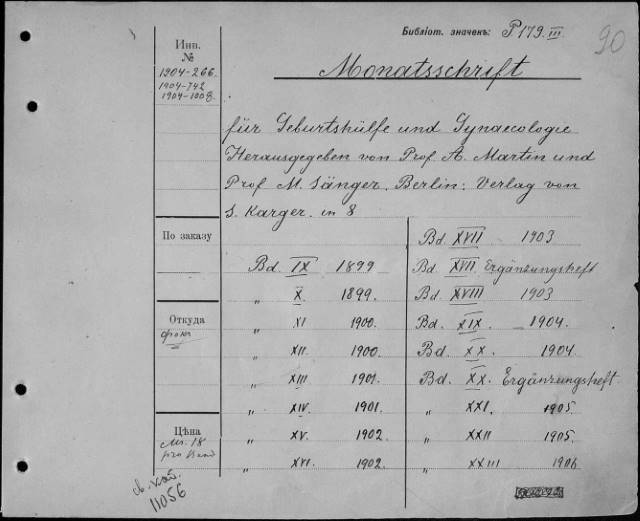 Библіот. значекъ: P 179. III.
90
Инв.
№
1904-266.
1904-742
1904-1008.
Monatsschrift
für Geburtshülfe und Gynaecologie
Herausgegeben von Prof. A. Martin und
Prof M. Sänger. Berlin: Verlag von
S. Karger. in 8
По заказу
Bd. IX 1899
„ X. 1899.
„ XI 1900.
„ XII 1900.
„ XIII 1901.
„ XIV. 1901.
„ XV. 1902.
„ XVI. 1902.
Bd. XVII 1903
Bd. XVII Ergänzungsheft
Bd. XVIII 1903
Bd. XIX. 1904.
Bd. XX. 1904.
Bd. XX. Ergänzungsheft.
„ XXI. 1905.
„ XXII 1905.
„ XXIII 1906
Откуда
Цѣна
Mr. 18
pro Band
св. кат.
11056